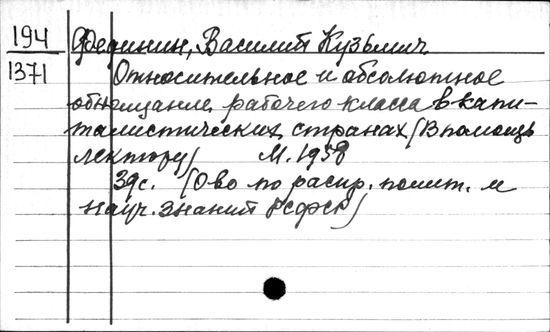 194
1371
Фединин, Василий Кузьмич
Относительное и абсолютное
обнищание рабочего класса в капи-
талистических странах (В помощь
лектору) М. 1958
39с. (О-во по распр. полит. и
науч. знаний РСФСР)